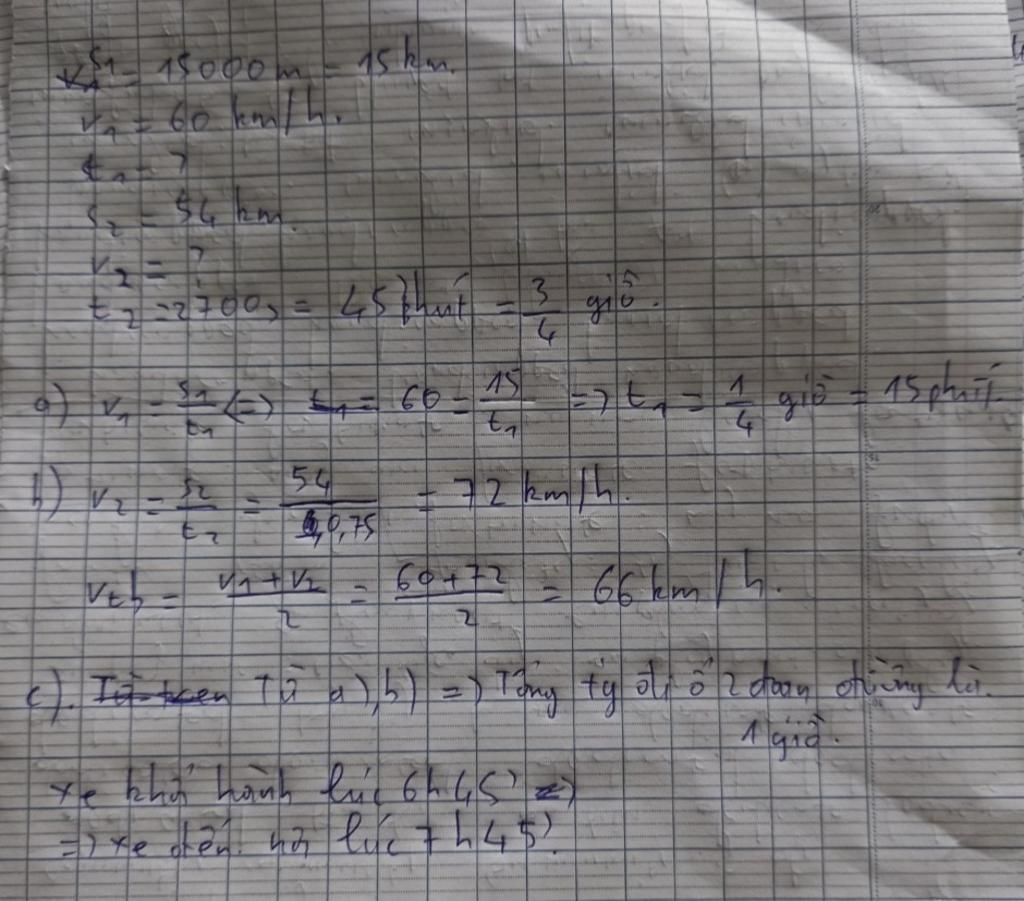 s₁ = 15000m = 15 km.
v₁ = 60 km/h.
t₁ = ?
s₂ = 54 km.
v₂ = ?
t₂ = 2700s = 45 phút = 3/4 giờ.
a) v₁ = s₁/t₁ <=> 60 = 15/t₁ => t₁ = 1/4 giờ = 15 phút.
b) v₂ = s₂/t₂ = 54/0,75 = 72 km/h.
vtb = (v₁ + v₂)/2 = (60+72)/2 = 66 km/h.
c). Từ a), b) => Tổng tg đi ở 2 đoạn đường là.
1 giờ.
xe khởi hành lúc 6h45'
=> xe đến lúc 7h45'.